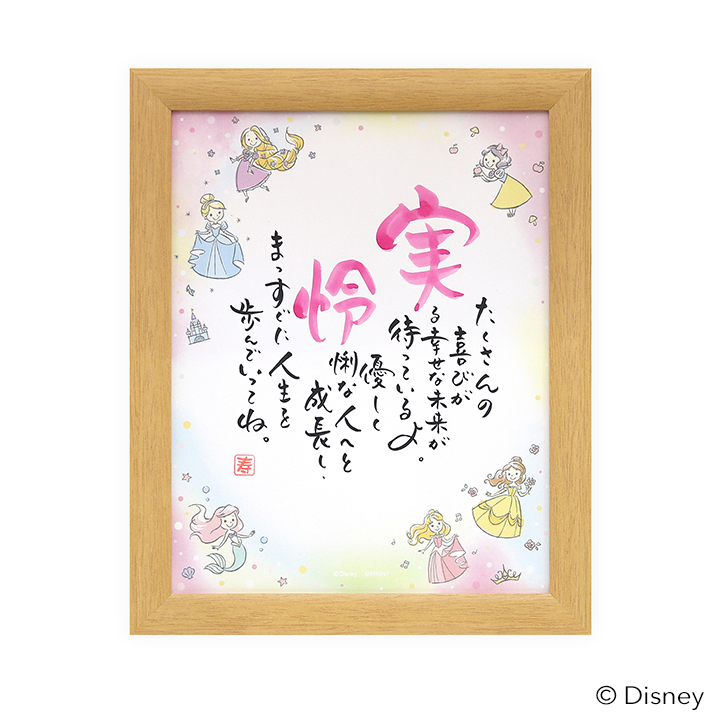 たくさんの
喜びが
実る幸せな未来が
待っているよ。
優しく
怜悧な人へと
成長し、
まっすぐに人生を
歩んでいってね。
寿
© Disney
© Disney